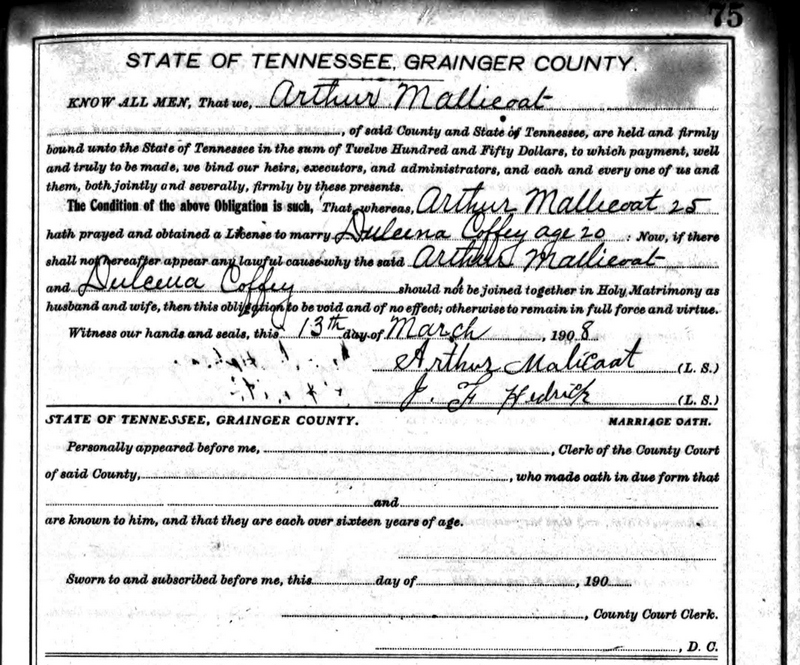 75
STATE OF TENNESSEE, GRAINGER COUNTY.
KNOW ALL MEN, That we, Arthur Mallicoat
, of said County and State of Tennessee, are held and firmly
bound unto the State of Tennessee in the sum of Twelve Hundred and Fifty Dollars, to which payment, well
and truly to be made, we bind our heirs, executors, and administrators, and each and every one of us and
them, both jointly and severally, firmly by these presents.
The Condition of the above Obligation is such, That, whereas, Arthur Mallicoat 25
hath prayed and obtained a License to marry Dulcena Coffey age 20 : Now, if there
shall not hereafter appear any lawful cause why the said Arthur Mallicoat
and Dulcena Coffey should not be joined together in Holy Matrimony as
husband and wife, then this obligation to be void and of no effect; otherwise to remain in full force and virtue.
Witness our hands and seals, this 13th day of March, 1908
Arthur Malicoat (L. S.)
J. F Hedrick (L. S.)
STATE OF TENNESSEE, GRAINGER COUNTY. MARRIAGE OATH.
Personally appeared before me, , Clerk of the County Court
of said County, , who made oath in due form that
and
are known to him, and that they are each over sixteen years of age.
Sworn to and subscribed before me, this day of , 190
, County Court Clerk.
, D. C.